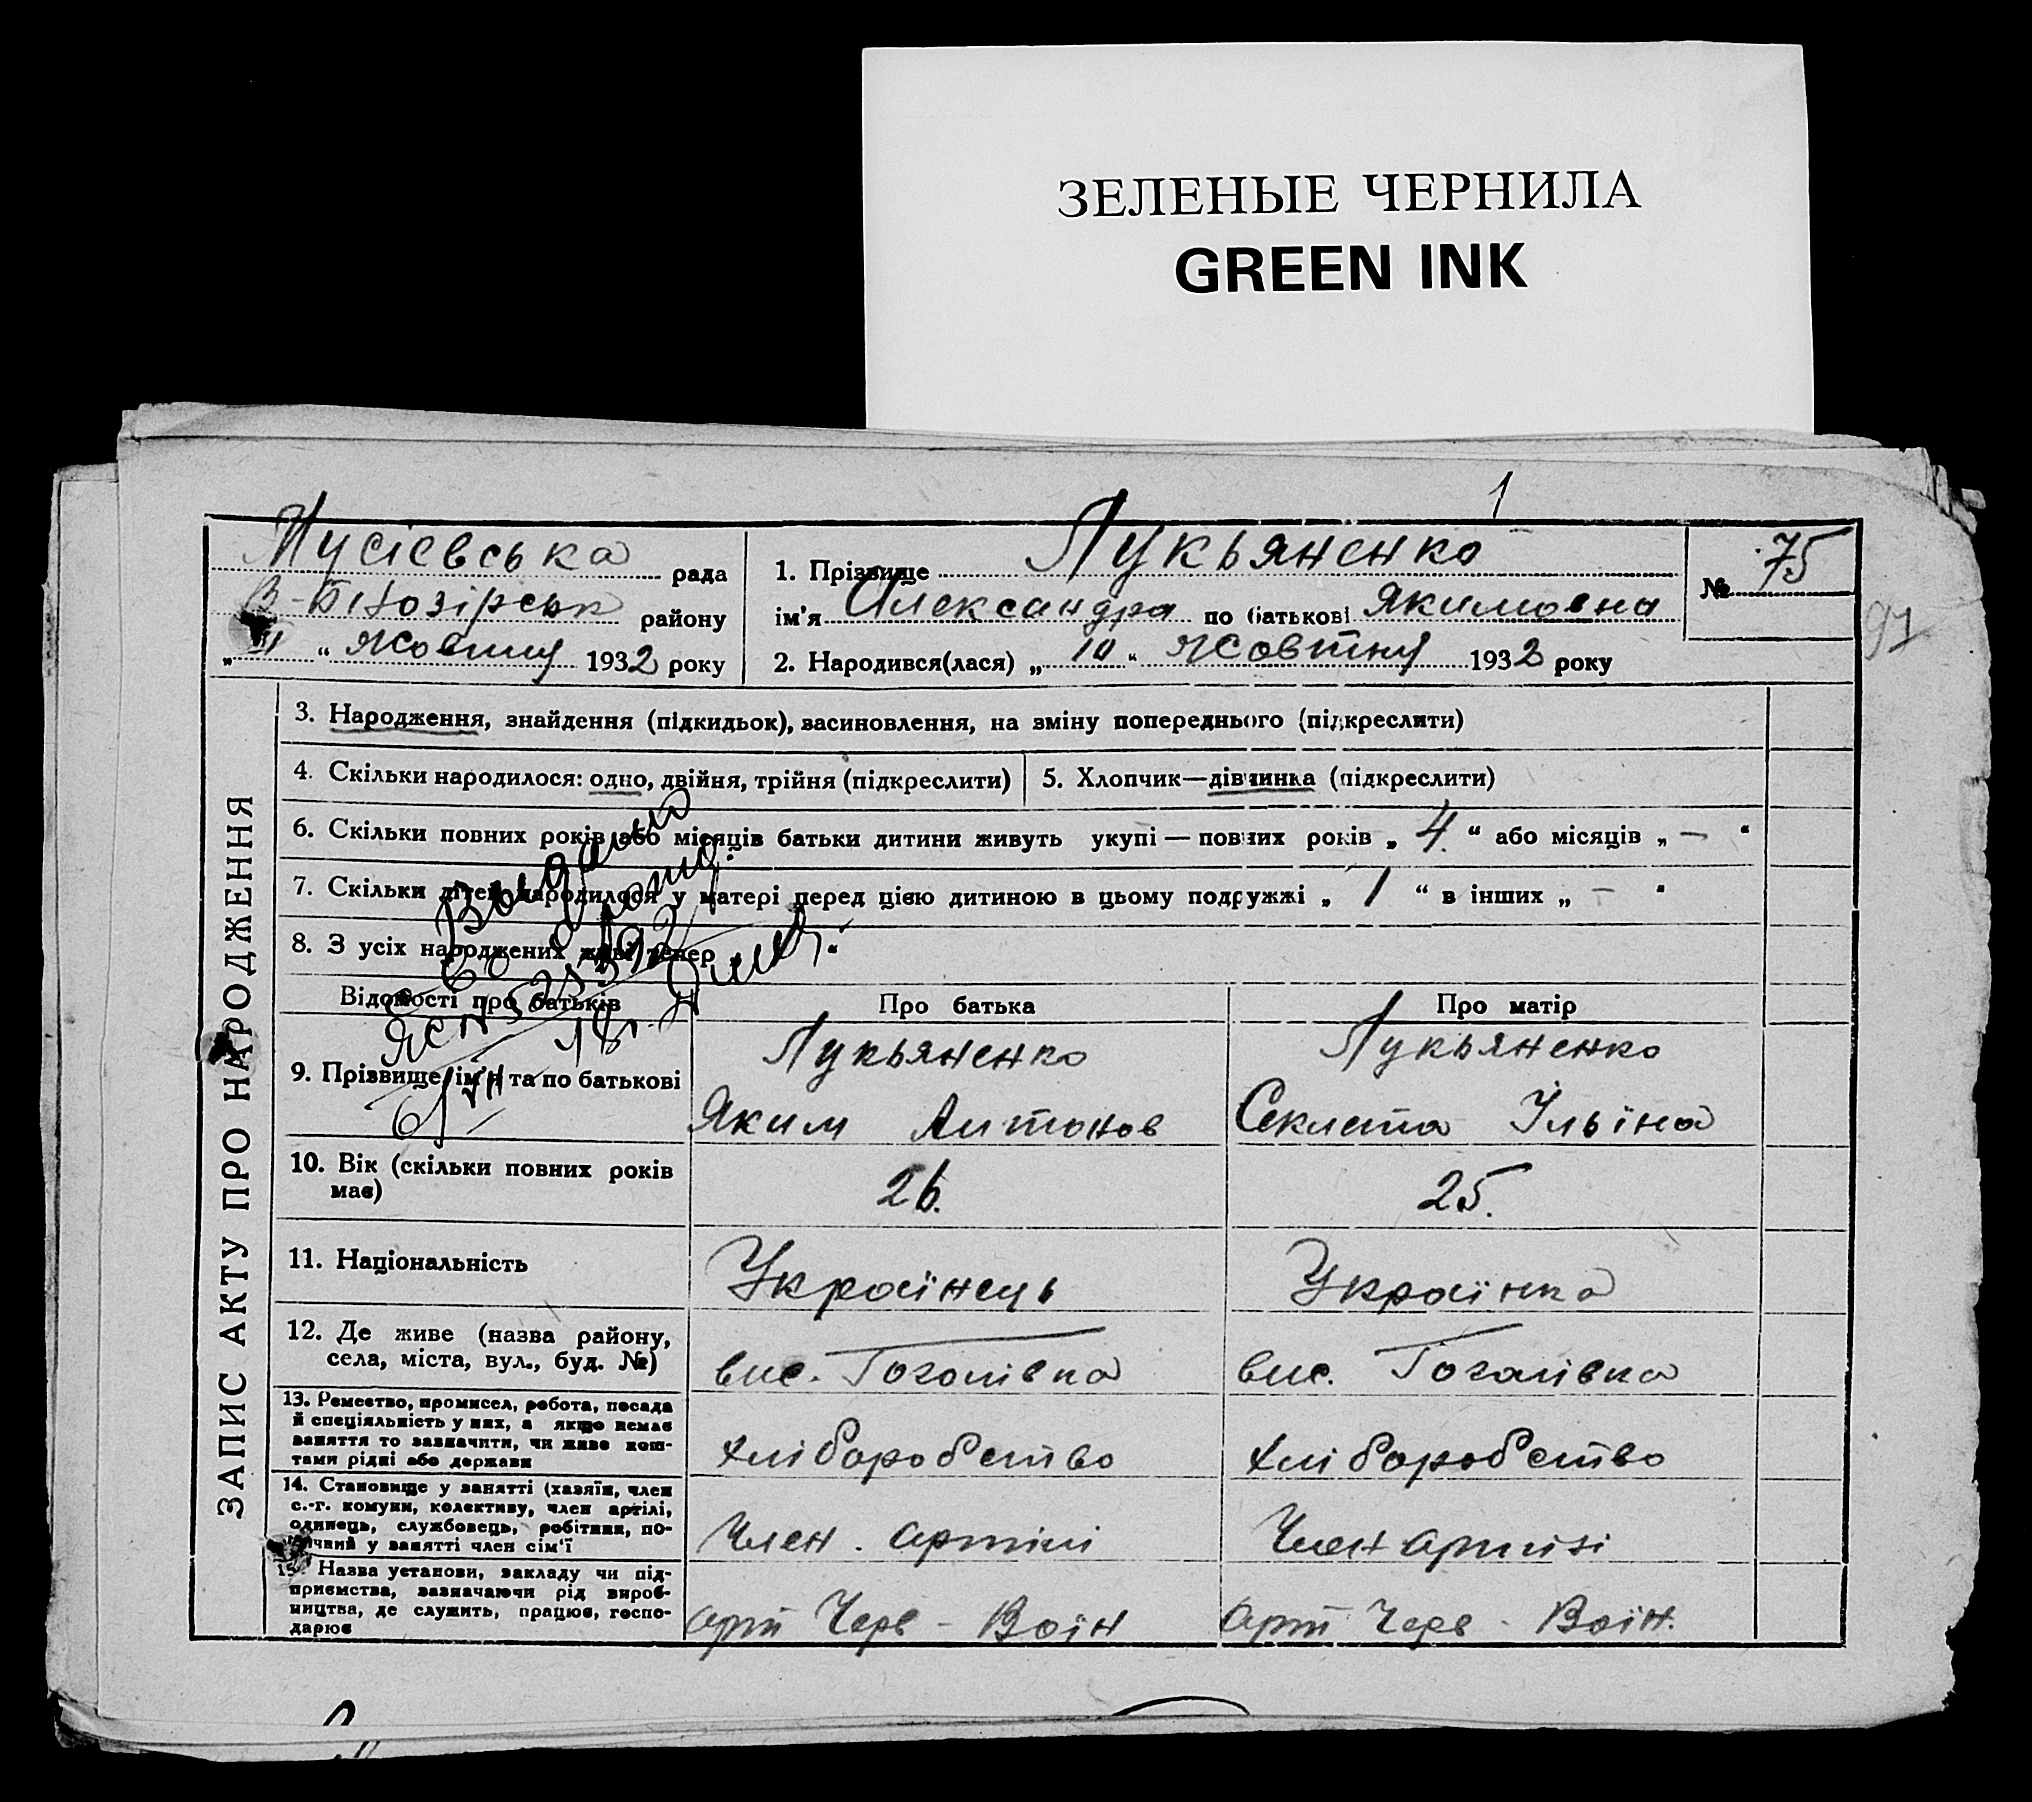 ЗЕЛЕНЫЕ ЧЕРНИЛА
GREEN INK
1
Мусієвська рада
В-Білозірськ району
„ 11 “ Жовтня 1932 року
1. Прізвище Лукьяненко
ім’я Александра по батькові Якимовна
2. Народився(лася) „ 10 “ Жовтня 1932 року
№ 75
97
ЗАПИС АКТУ ПРО НАРОДЖЕННЯ
3. Народження, знайдення (підкидьок), васиновлення, на зміну попереднього (підкреслити)
4. Скільки народилося: одно, двійня, трійня (підкреслити)
5. Хлопчик—дівчинка (підкреслити)
6. Скільки повних років або місяців батьки дитини живуть укупі — повних років „ 4. “ або місяців „ — “
7. Скільки дітей народилося у матері перед цією дитиною в цьому подружжі „ 1 “ в інших „ — “
8. З усіх народжених живі тепер „ “
Выдано
Відомості про батьків
Про батька
Про матір
9. Прізвище, ім’я та по батькові
Лукьяненко
Яким Антонов
Лукьяненко
Секлета Ільїна
10. Вік (скільки повних років
має)
26.
25.
11. Національність
Украінець
Украінка
12. Де живе (назва району,
села, міста, вул., буд. №)
вис. Гоголівка
вис. Гоголівка
13. Ремество, промисел, робота, посада
й спеціяльність у них, а якщо немає
заняття то зазначити, чи живе кош-
тами рідні або держави
хліборобство
хліборобство
14. Становище у занятті (хазяїн, член
с.-г. комуни, колективу, член артілі,
одинець, службовець, робітник, по-
мічний у занятті член сім’ї
Член. артілі
Член артілі
15. Назва установи, закладу чи під-
приємства, зазначаючи рід вироб-
ництва, де служить, працює, госпо-
дарює
арт Черв - Воін
арт Черв - Воін.